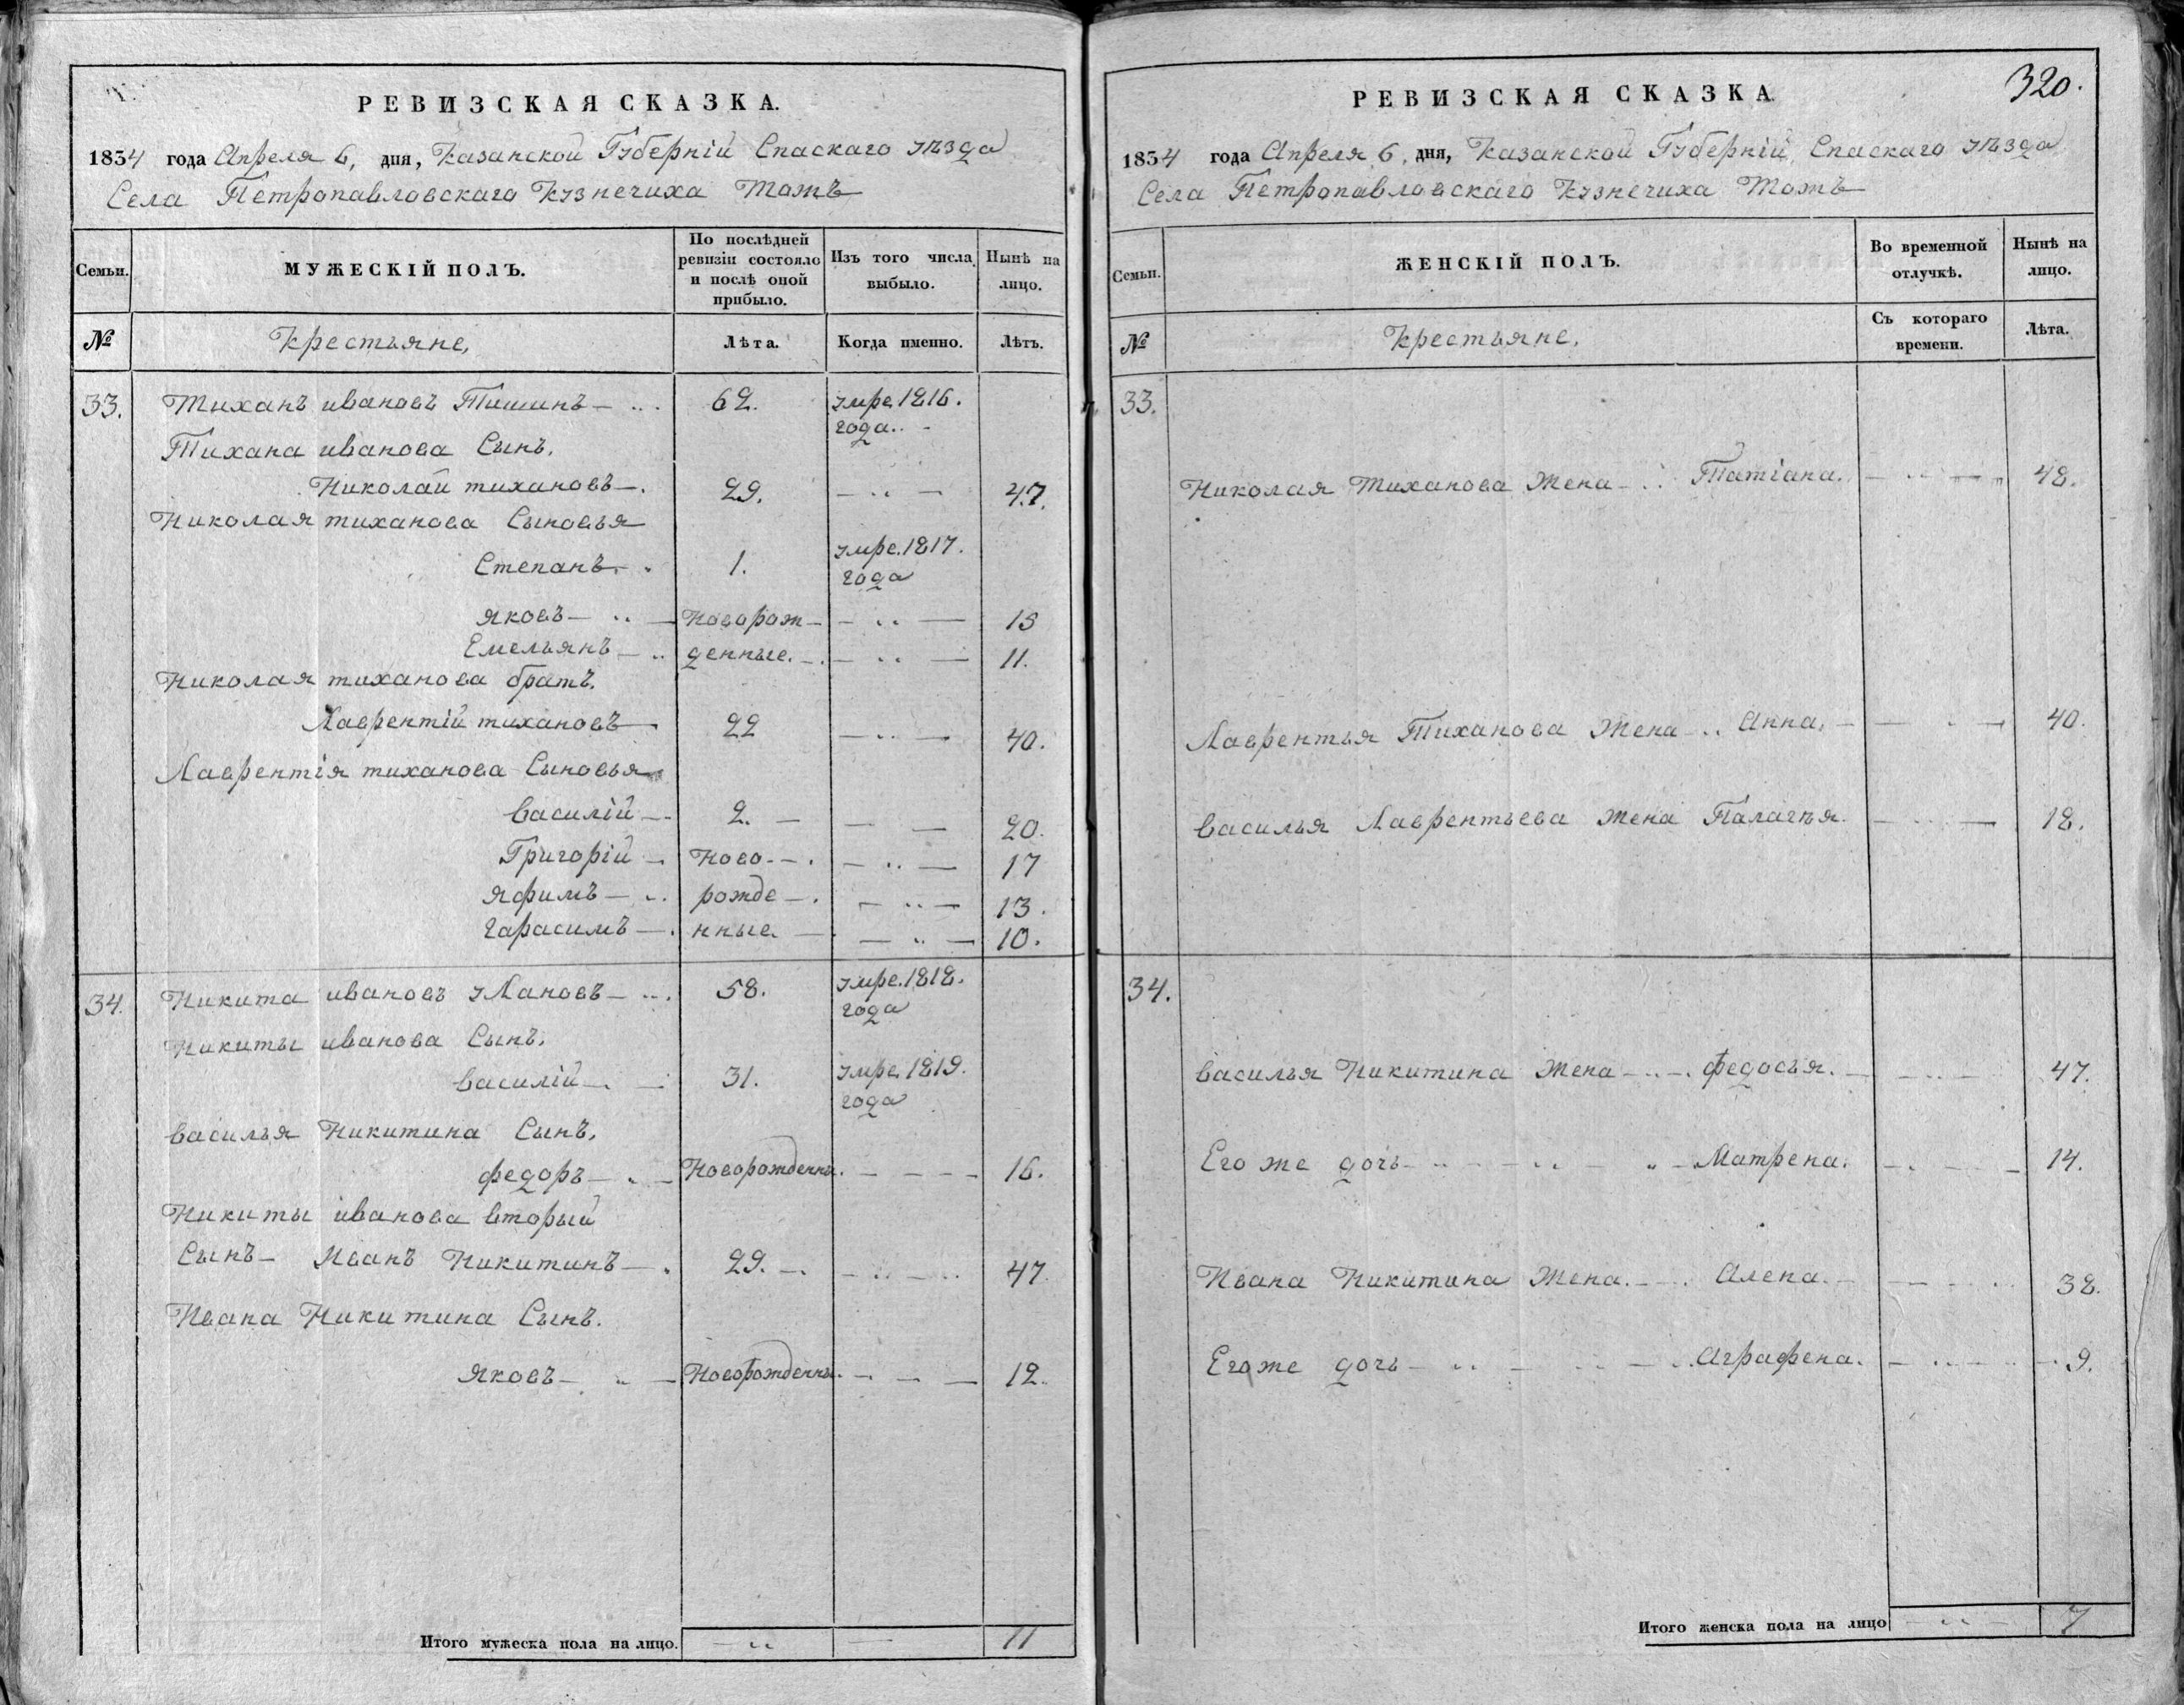 РЕВИЗСКАЯ СКАЗКА.
1834 года Апреля 6, дня, Казанской Губерній Спаскаго уѣзда
Села Петропавловскаго Кузнечиха тожъ
Семьи.
МУЖЕСКІЙ ПОЛЪ.
По послѣдней ревизіи состояло и послѣ оной прибыло.
Изъ того числа выбыло.
Нынѣ на лицо.
№
Крестьяне,
Лѣта.
Когда именно.
Лѣтъ.
33. Тиханъ ивановъ Тишинъ 62. умре 1816. года
Тихана иванова Сынъ.
Николай тихановъ 29. 47.
Николая тиханова Сыновья
Степанъ 1. умре. 1817. года
яковъ Новорож 15
Емельянъ денные. 11.
Николая тиханова братъ.
Лаврентій тихановъ 22 40.
Лаврентія тиханова Сыновья
Василій 2. 20.
Григорій Ново 17
яфимъ рожде 13.
гарасимъ нные. 10.
34. Никита ивановъ уЛановъ 58. умре. 1818. года
Никиты иванова Сынъ.
Василій 31. умре. 1819. года
Василья Никитина Сынъ.
федоръ Новорожденны. 16.
Никиты иванова вторый
Сынъ Иванъ Никитинъ 29. 47.
Ивана Никитина Сынъ.
яковъ Новорожденны. 12.
Итого мужеска пола на лицо. 11
320.
РЕВИЗСКАЯ СКАЗКА.
1834 года Апреля 6, дня, Казанской Губерній, Спаскаго уѣзда
Села Петропавловскаго Кузнечиха тожъ
Семьи.
ЖЕНСКІЙ ПОЛЪ.
Во временной отлучкѣ.
Нынѣ на лицо.
№
Крестьяне.
Съ котораго времени.
Лѣта.
33.
Николая Тиханова Жена Татіана. 48.
Лаврентья Тиханова Жена Анна. 40.
Василья Лаврентьева Жена Палагѣя. 18.
34.
Василья Никитина Жена федосья. 47.
Его же дочь Матрена. 14.
Ивана Никитина Жена. Алена. 38.
Его же дочь Аграфена. 9.
Итого женска пола на лицо 7